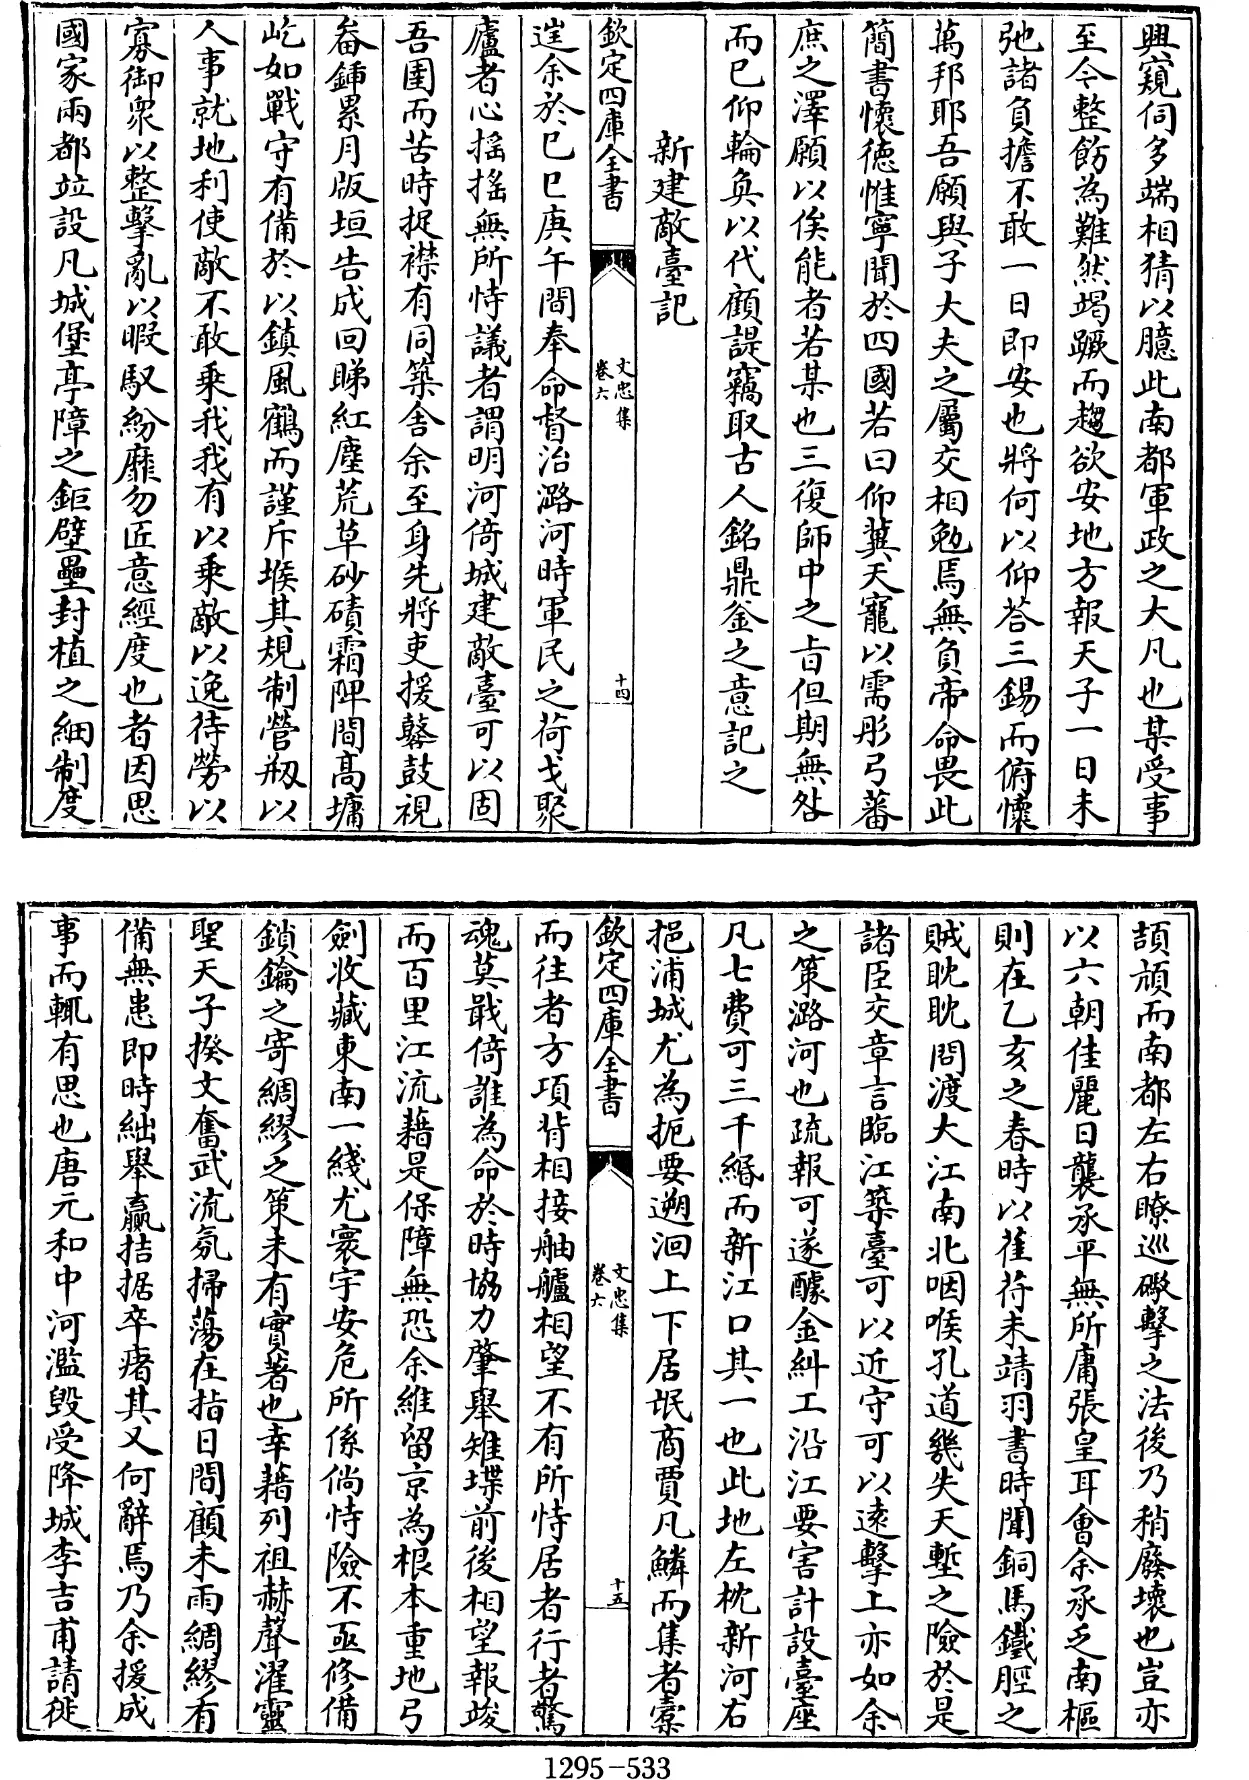 興窺伺多端相猜以臆此南都軍政之大凡也某受事
至今整飭為難然竭蹶而趨欲安地方報天子一日未
弛諸負擔不敢一日即安也將何以仰答三錫而俯懷
萬邦耶吾願與子大夫之屬交相勉焉無負帝命畏此
簡書懷德惟寧聞於四國若曰仰冀天寵以需彤弓蕃
庶之澤願以俟能者若某也三復師中之旨但期無咎
而已仰輪奐以代顧諟竊取古人銘鼎釜之意記之
新建敵臺記
欽定四庫全書
文忠集
卷六
十四
逬余於己巳庚午間奉命督治潞河時軍民之荷戈聚
廬者心搖搖無所恃議者謂明河倚城建敵臺可以固
吾圉而苦時捉襟有同築舍余至身先將吏援鼛鼓視
畚鍤累月版垣告成回睇紅塵荒草砂磧霜陴間高墉
屹如戰守有備於以鎮風鶴而謹斥堠其規制營剏以
人事就地利使敵不敢乘我我有以乘敵以逸待勞以
寡御衆以整擊亂以暇馭紛靡勿匠意經度也者因思
國家兩都竝設凡城堡亭障之鉅壁壘封植之細制度
頡頏而南都左右瞭巡礮擊之法後乃稍廢壞也豈亦
以六朝佳麗日襲承平無所庸張皇耳會余承乏南樞
則在乙亥之春時以萑苻未靖羽書時聞銅馬鐵脛之
賊眈眈問渡大江南北咽喉孔道幾失天塹之險於是
諸臣交章言臨江築臺可以近守可以遠擊上亦如余
之策潞河也疏報可遂醵金糾工沿江要害計設臺座
凡七費可三千緡而新江口其一也此地左枕新河右
挹浦城尤為扼要遡洄上下居氓商賈凡鱗而集者橐
欽定四庫全書
文忠集
卷六
十五
而往者方項背相接舳艫相望不有所恃居者行者驚
魂莫戢倚誰為命於時協力肇舉雉堞前後相望報竣
而百里江流藉是保障無恐余維留京為根本重地弓
劍收藏東南一綫尤寰宇安危所係倘恃險不亟修備
鎖鑰之寄綢繆之策未有實著也幸藉列祖赫聲濯靈
聖天子揆文奮武流氛掃蕩在指日間顧未雨綢繆有
備無患即時絀舉贏拮据卒瘏其又何辭焉乃余援成
事而輒有思也唐元和中河濫毀受降城李吉甫請徙
1295-533